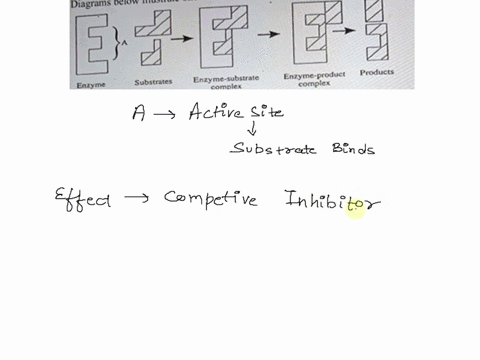 Diagrams below illustrate
A
Enzyme
Substrates
Enzyme-substrate
complex
Enzyme-product
complex
Products
A → Active site
↓
Substrate Binds
Effect → Competive Inhibitor